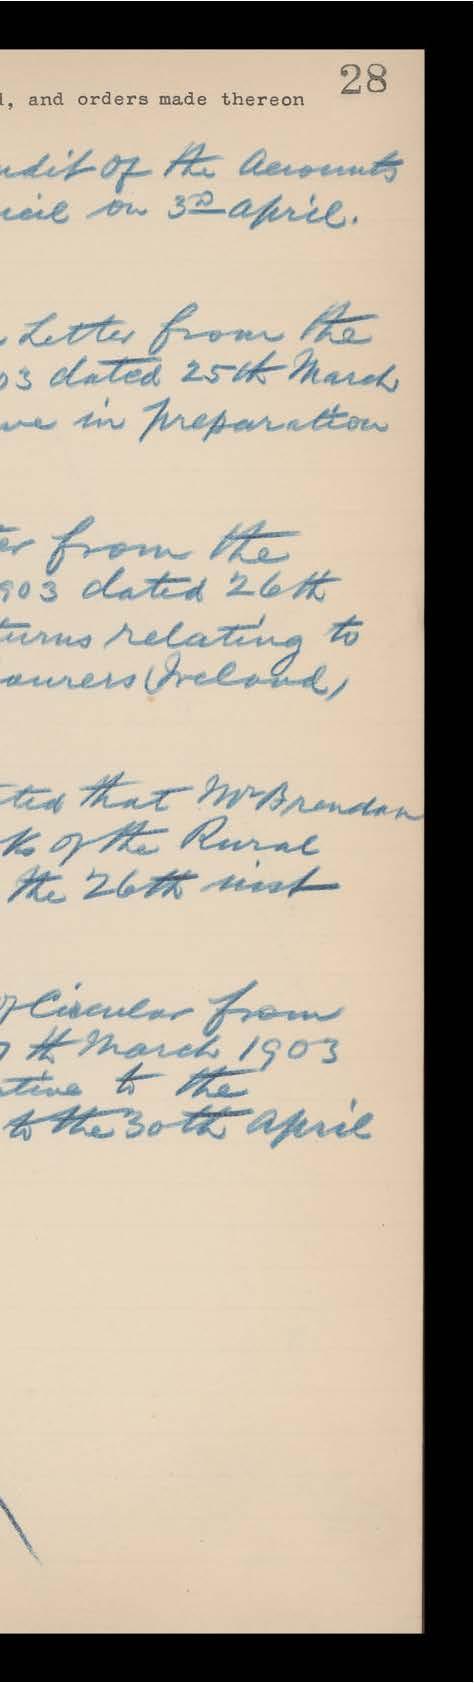 28
d, and orders made thereon
udit of the Accounts
ncil on 3rd April.
Letter from the
03 dated 25th March
ve in preparation
er from the
903 dated 26th
turns relating to
ourers (Ireland)
ted that Mr Brendan
k of the Rural
the 26th inst
of Circular from
7th March 1903
ative to the
to the 30th April